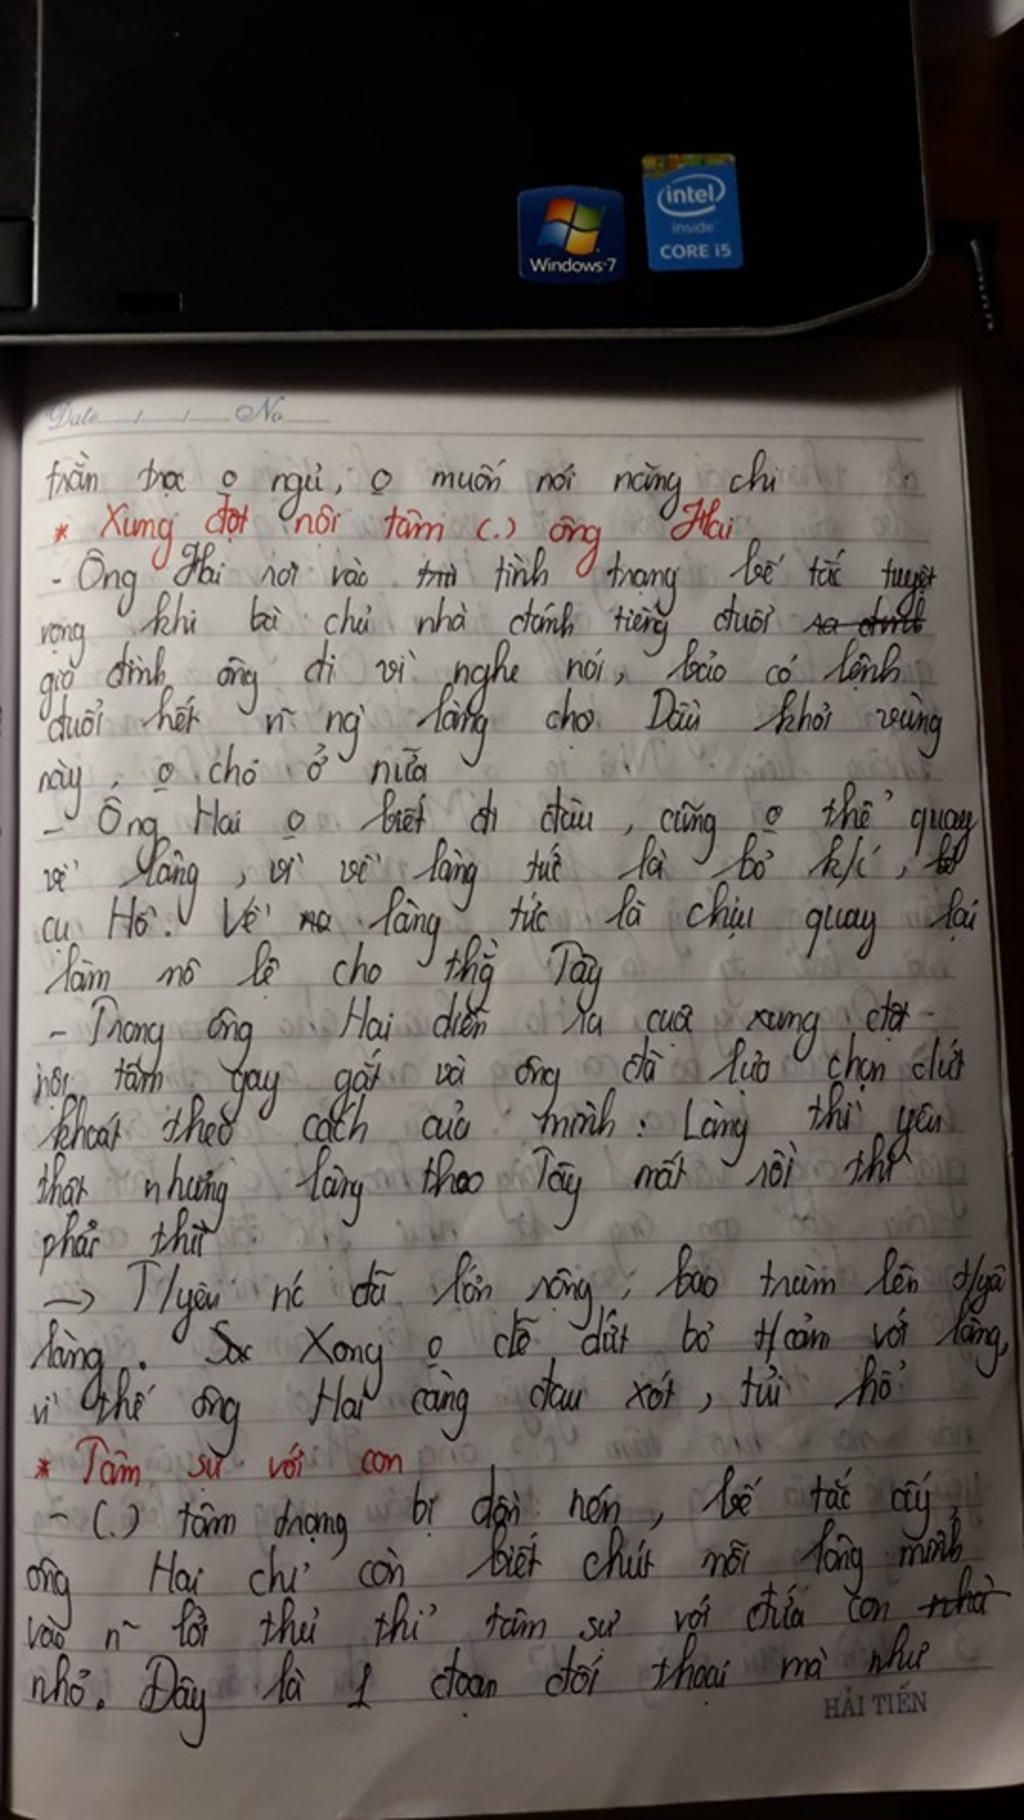 intel
inside
CORE i5
Windows 7
Date....../....../...... No
trằn trọc o ngủ, o muốn nói năng chi
* Xung đột nôi tâm (.) ông Hai
- Ông Hai rơi vào tình trạng bế tắc tuyệt
vọng khi bà chủ nhà đánh tiếng đuổi
gia đình ông đi vì nghe nói, bảo có lệnh
đuổi hết n~ ng` làng chợ Dầu khỏi vùng
này, o cho ở nữa
- Ông Hai o biết đi đâu, cũng o thể quay
về làng, vì về làng tức là bỏ k/c,
cụ Hồ. Về làng tức là chịu quay lại
làm nô lệ cho thằ Tây
- Trong ông Hai diễn ra cuộc xung đột
nội tâm gay gắt và ông đã lựa chọn dứt
khoát theo cách của mình: Làng thì yêu
thật nhưng làng theo Tây mất rồi thì
phải thù
-> T/yêu nc' đã lớn rộng, bao trùm lên t/yê
làng. Xong o dễ dứt bỏ t/cảm với làng,
vì thế ông Hai càng đau xót, tủi hổ
* Tâm sự với con
- (.) tâm trạng bị dồn nén, bế tắc ấy,
ông Hai chỉ còn biết chút nỗi lòng mình
vào n~ lời thủ thỉ tâm sự với đứa con
nhỏ. Đây là 1 đoạn đối thoại mà như
HẢI TIẾN